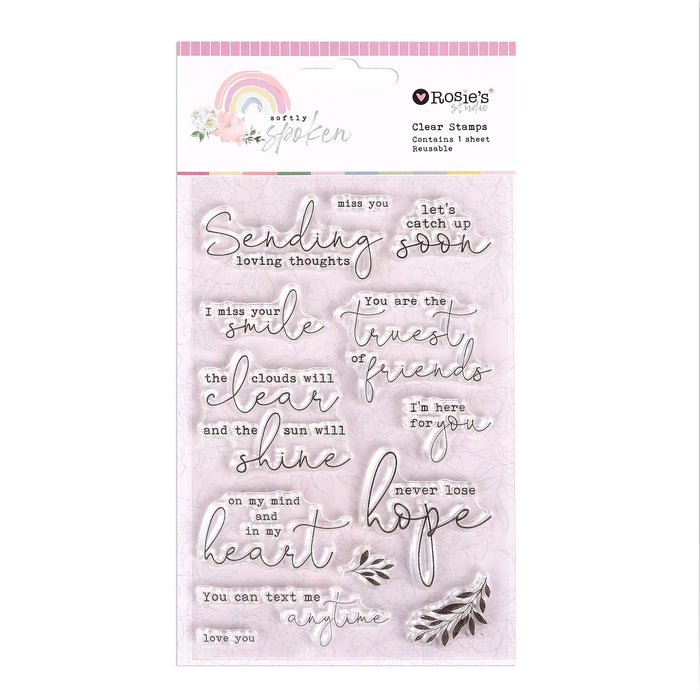 softly
spoken
Rosie's
studio
Clear Stamps
Contains 1 sheet
Reusable
miss you
Sending
loving thoughts
let's
catch up
soon
I miss your
smile
You are the
truest
of
friends
the clouds will
clear
and the sun will
shine
I'm here
for you
on my mind
and
in my
heart
never lose
hope
You can text me
anytime
love you